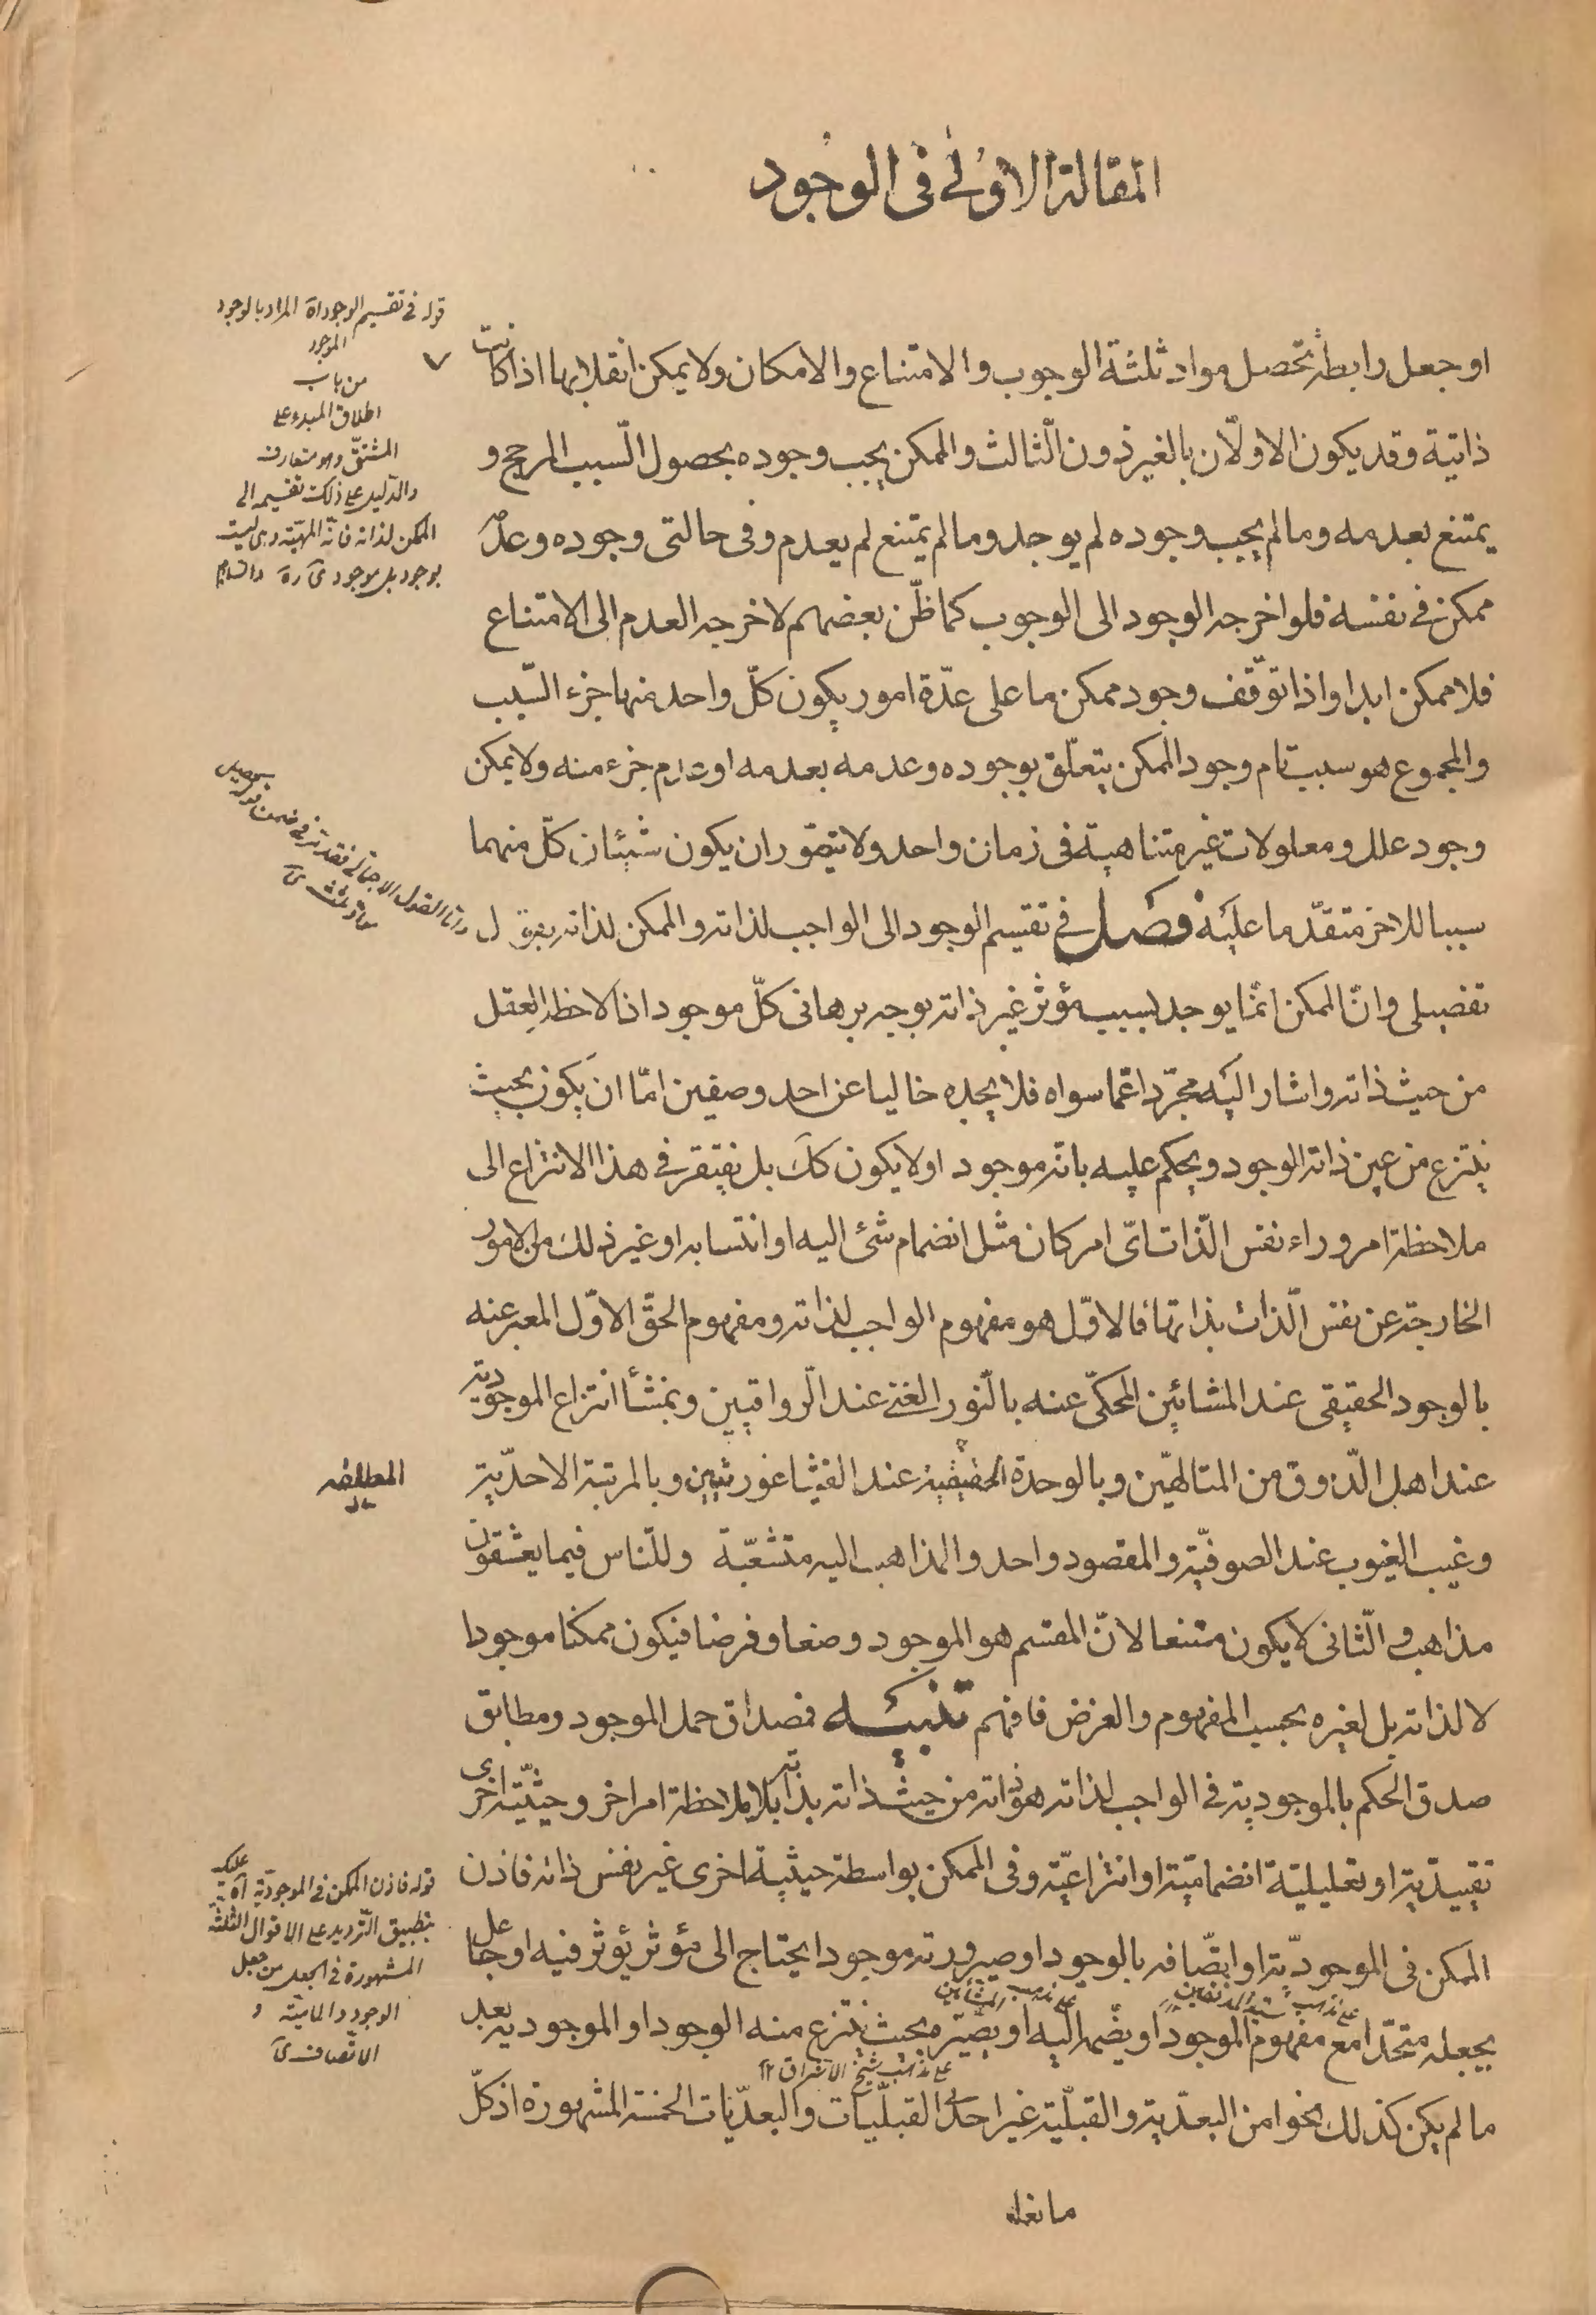 المقالة الاولى فى الوجود
او جعل رابطة تحصل مواد ثلثة الوجوب والامتناع والامكان ولا يمكن انقلابها اذا كانت
ذاتية وقد يكون الاولّان بالغير دون الثالث والممكن يجب وجوده بحصول السّبب المرجح و
يمتنع بعدمه وما لم يجب وجوده لم يوجد وما لم يمتنع لم يعدم وفى حالتى وجوده وعدمه
ممكن فى نفسه فلو اخرجه الوجود الى الوجوب كما ظنّ بعضهم لاخرجه العدم الى الامتناع
فلا ممكن ابدا واذا توقّف وجود ممكن ما على عدّة امور يكون كلّ واحد منها جزء السّبب
والمجموع هو سبب تام وجود الممكن يتعلّق بوجوده وعدمه بعدمه او عدم جزء منه ولا يمكن
وجود علل ومعلولات غير متناهية فى زمان واحد ولا يتصّور ان يكون شيئان كلّ منهما
سببا للاخر متقدّما عليه فصل فى تقسيم الوجود الى الواجب لذاته والممكن لذاته بقول
تفصيلى وانّ الممكن انّما يوجد لسبب مؤثر غير ذاته بوجه برهانى كلّ موجود اذا لاحظه العقل
من حيث ذاته واشار اليه مجرّدا عمّا سواه فلا يجده خاليا عن احد وصفين امّا ان يكون بحيث
ينتزع من عين ذاته الوجود ويحكم عليه بانّه موجود او لا يكون كك بل يفتقر فى هذا الانتزاع الى
ملاحظة امر وراء نفس الّذات اىّ امر كان مثل انضمام شئ اليه او انتسابه او غير ذلك من الامور
الخارجة عن نفس الّذات بذاتها فالاوّل هو مفهوم الواجب لذاته ومفهوم الحقّ الاوّل المعبر عنه
بالوجود الحقيقى عند المشائين المحكّى عنه بالنّور الغنى عند الّرواقيين وبمنشأ انتزاع الموجودية
عند اهل الّذوق من المتالهّين وبالوحدة الحقيقية عند الفيثاغورثيين وبالمرتبة الاحدّية
وغيب الغيوب عند الصوفيّة والمقصود واحد والمذاهب اليه متشعّبة وللنّاس فيما يعشقون
مذاهب والّثانى لا يكون ممتنعا لانّ المقسم هو الموجود وضعا وفرضا فيكون ممكنا موجودا
لا لذاته بل لغيره بحسب المفهوم والفرض فافهم تنبيه فمصداق حمل الموجود ومطابق
صدق الحكم بالموجودية فى الواجب لذاته هو ذاته من حيث ذاته بذاته بلا ملاحظة امر اخر وحيثيّة اخرى
تقييدّية او تعليليّة انضماميّة او انتزاعيّة وفى الممكن بواسطة حيثيّة اخرى غير نفس ذاته فاذن
الممكن فى الموجودّية او اتّصافه بالوجود او صيرورته موجودا يحتاج الى مؤثر يؤثر فيه او جاعل
على مذهب سيد المدققين
على مذهب المشائين
يجعله متحّدا مع مفهوم الموجود او يضّمه اليه او يصّيره بحيث ينتزع منه الوجود او الموجودية بعد
على مذهب شيخ الاشراق
ما لم يكن كذلك نحوا من البعدّية والقبلّية غير احدى القبلّيات والبعدّيات الخمسة المشهورة اذ كلّ
ما نعله
قوله فى تقسيم الوجود اه المراد بالوجود
الموجود
من باب
اطلاق المبدء على
المشتقّ وهو متعارف
والدّليل على ذلك تقسيمه الى
الممكن لذاته فانّه المهيّة وهى ليست
بوجود بل موجود
وامّا القول الاجمالى فقد مرّ فى ضمن
قوله فاذن الممكن فى الموجودّية اه عليك
بتطبيق التّرديد على الاقوال الثلثة
المشهورة فى الجعل من جعل
الوجود والماهيّة و
الاتّصاف